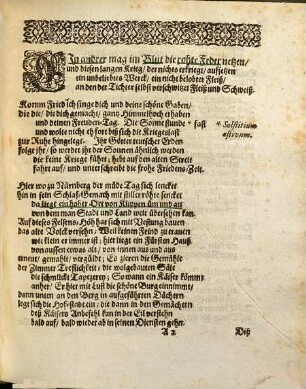 Ein andrer mag im Blut die rohte Feder netzen/
und diesen langen Krieg/ der nichts erkriegt/ aufsetzen
ein unbeliebtes Werck/ ein nicht belobten Fleiß/
an den der Tichter selbst verschwitzt Fleiß und Schweiß.
Komm Fried ich singe dich und deine schöne Gaben/
die die/ die dich gemacht/ gantz Himmelhoch erhaben
und deinen Freuden-Tag. Die Sonne stunde * fast
und wolte nicht ehfort biß sich die Kriegeslast
* Solstitium
æstivum.
zur Ruhe hingelegt. Ihr Götter teutscher Erden
folgt ihr/ so werdet ihr der Sonnen ähnlich werden
die keine Kriege führt; hebt auf den alten Streit
fahrt auf/ und unterschreibt die frohe Friedens-Zeit.
Hier wo zu Nürnberg der müde Tag sich sencket
hin in sein Schlaf-Gemach mit stiller
da liegt ein hoher Ort von Klippen üm und an
von dem man Stadt und Land weit übersehen kan.
Auf diesen Felsens-Höh hat sich mit Vestung bauen
das alte Volck versehn/ Weil keinen Feind zu trauen
wie klein er immer ist; hier liegt ein Fürsten Hauß
von aussen etwas alt/ von innen aus und aus
erneut/ gemahlt/ vergüldt; Es zieren die Gemählde
der Zimmer Treflichkeit; die wolgebauten Säle
die schmückt Tapezerey; So wann ein Käiser kommt
anher/ Er hier mit Lust die schöne Burg einnimmt;
dann unten an den Berg in aufgeführten Dächern
legt sich die Hofestadt ein/ die dann in den Gemächern
deß Käisers Anbefehl kan in der Eil verstehn
bald auf/ bald wieder ab in seinen Diensten gehn.
A 2
Deß